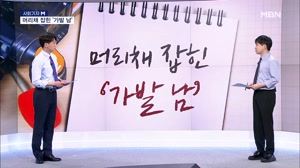 사회기자 M
머리채 잡힌 '가발 남'
MBN
머리채 잡힌
'가발 남'